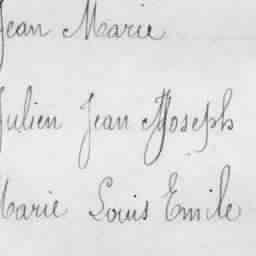 Jean Marie
Julien Jean Joseph
Marie Louis Emile